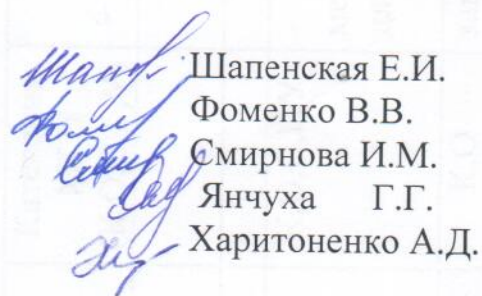 Шапенская Е.И.
Фоменко В.В.
Смирнова И.М.
Янчуха Г.Г.
Харитоненко А.Д.